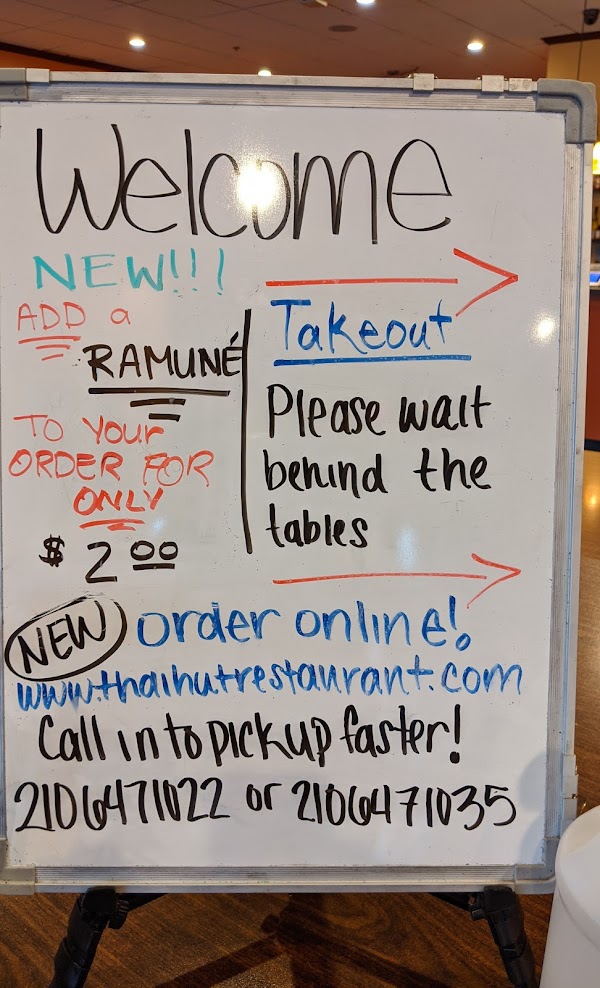 Welcome
NEW!!!
ADD a
RAMUNÉ
TO Your
ORDER FOR
ONLY
$ 2 00
Takeout
Please wait
behind the
tables
NEW order online!
www.thaihutrestaurant.com
Call in to pickup faster!
2106471022 or 2106471035